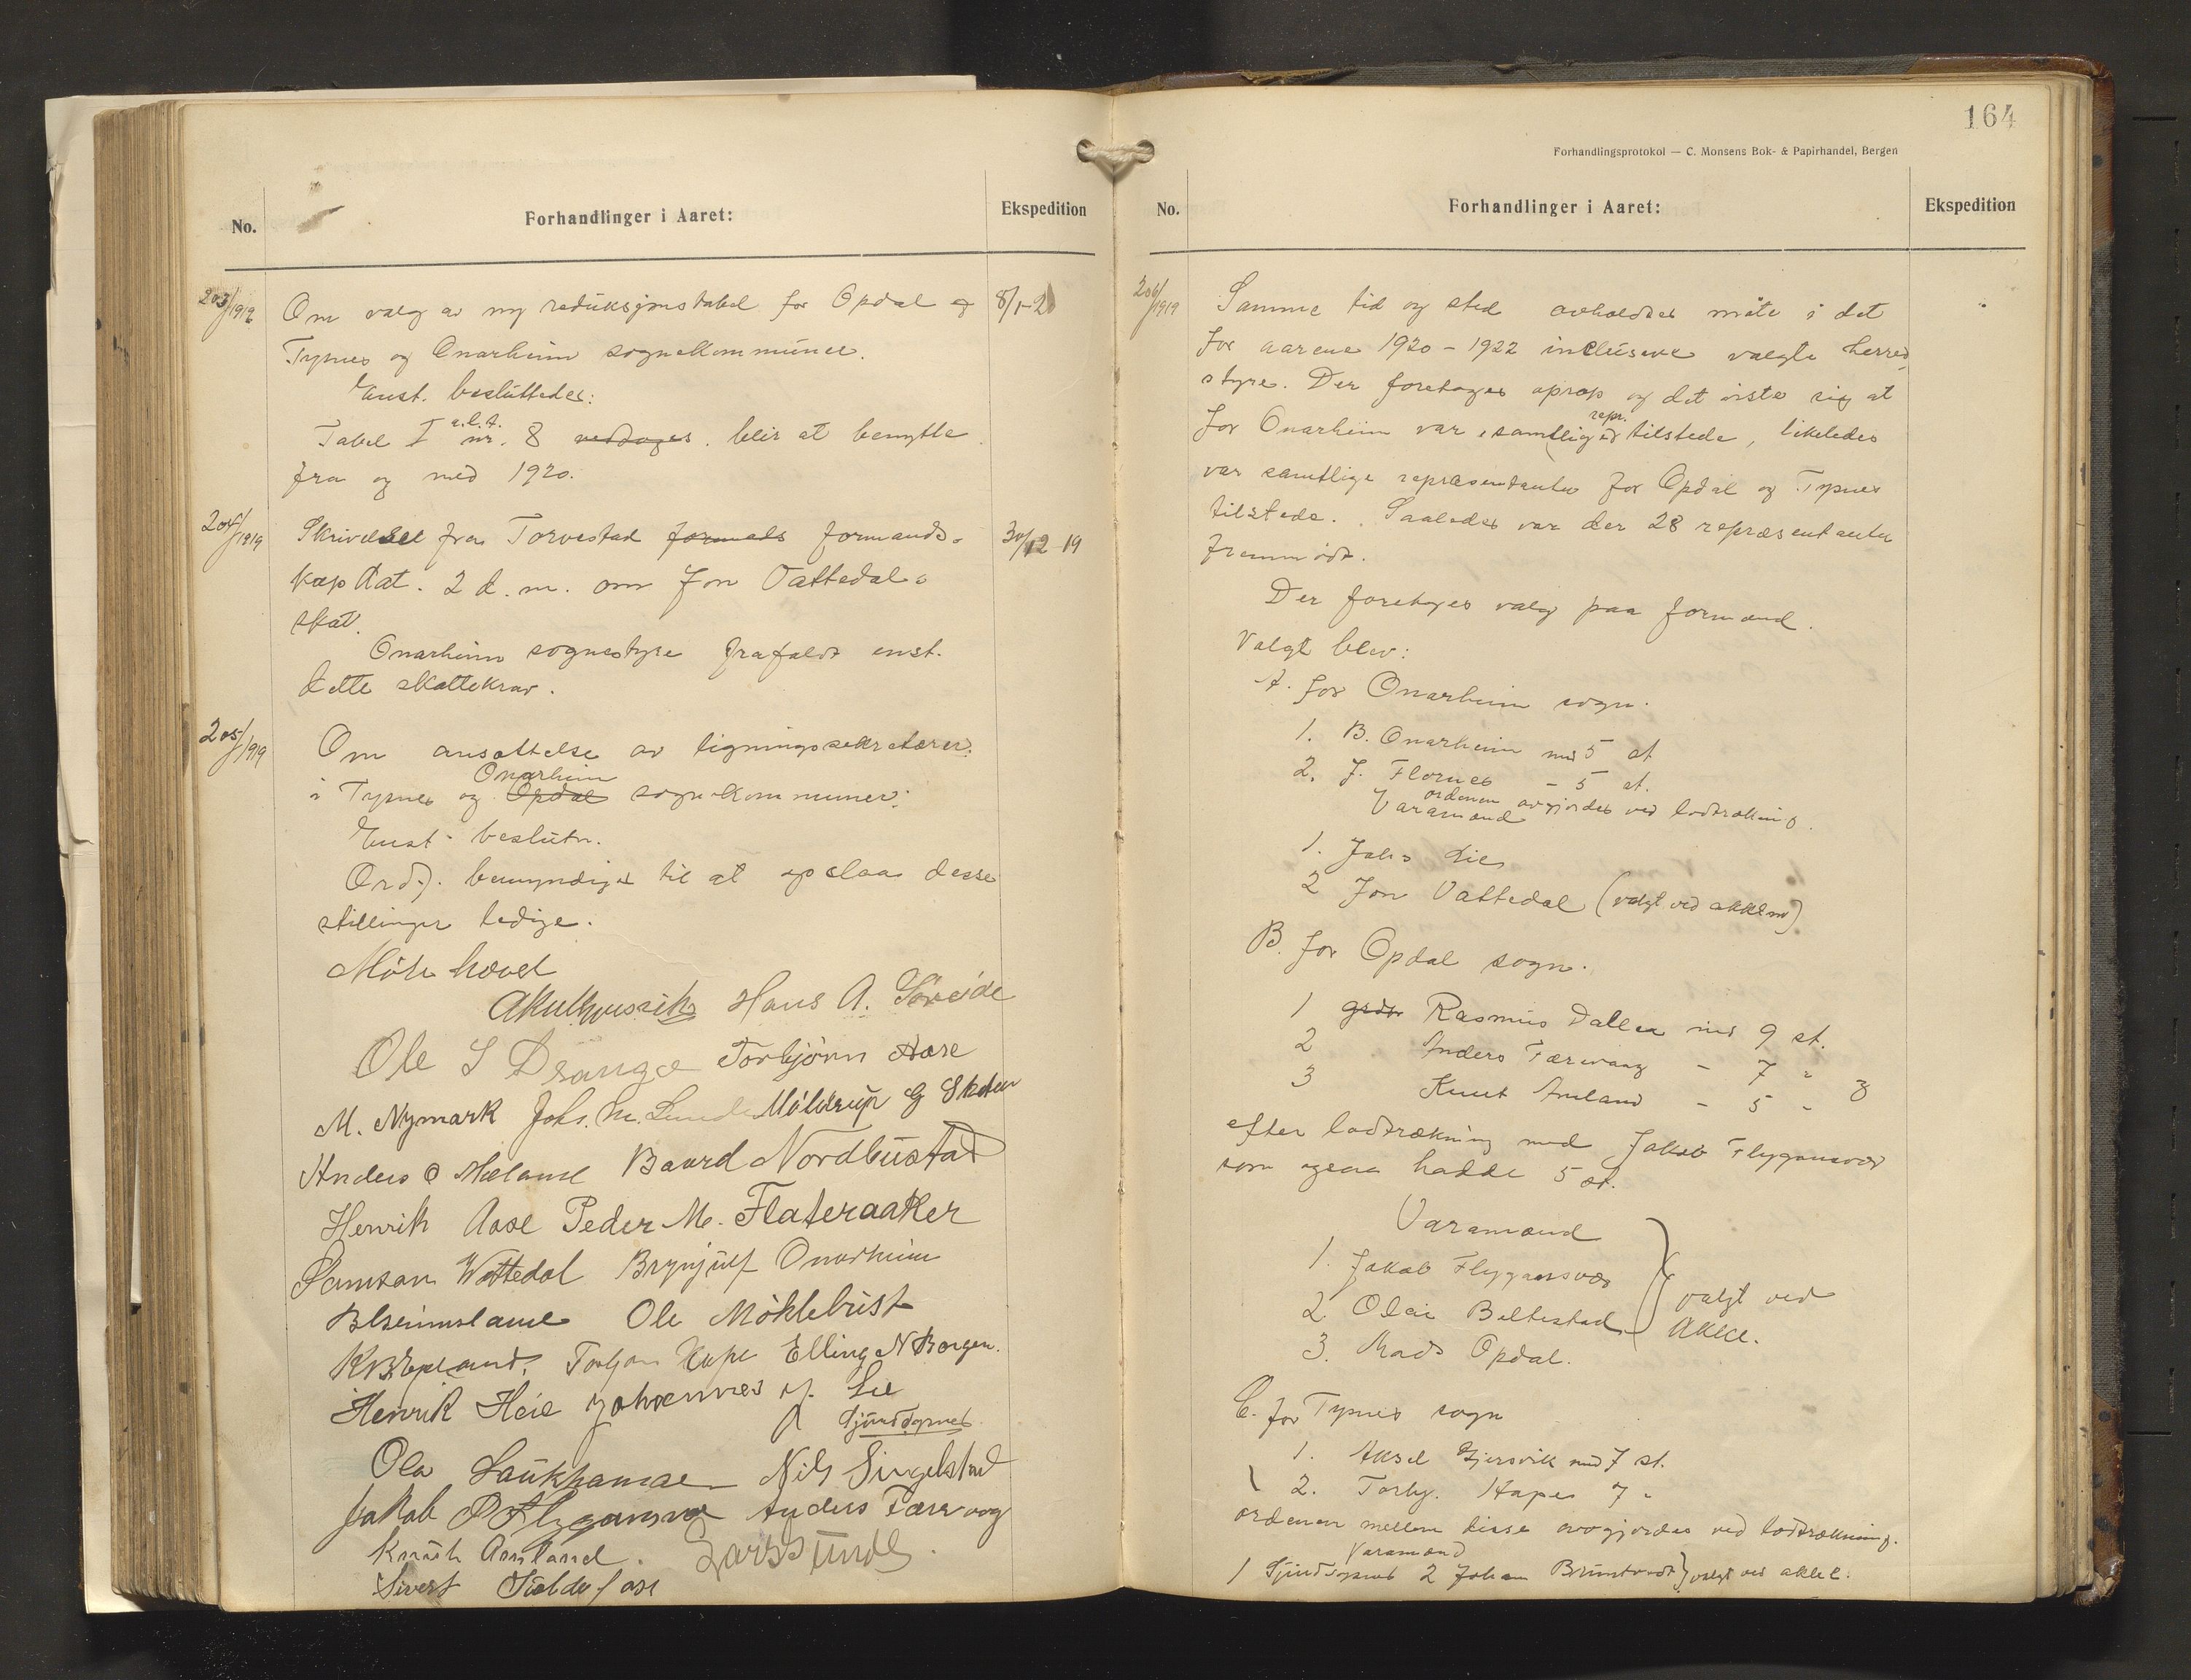 No.
Forhandlinger i Aaret:
Ekspedition
203/1919
Om valg av ny reduksjonstabel for Opdal og
8/1-20
Tysnes og Onarheim sognekommuner.
Enst. besluttedes:
a.l.t.
Tabel I nr. 8 vedtages. blir at benytte
fra og med 1920.
204/1919
Skrivelse fra Torvestad formands formands-
30/12 19
kap dat. 2 d.m. om Jon Vattedals
skat.
Onarheim sognestyre frafaldt enst.
dette skattekrav.
205/1919
Om ansættelse av ligningssekretærer
Onarheim
i Tysnes og Opdal sognekommuner.
Enst. beslutn.
Ordf. bemyndiges til at opslaa desse
stillinger ledige.
Möte hævet
Hans A. Söreide
Ole S Drange Torbjörn Aase
M. Nymark Johs. M. Lunde Möldrup G Skaten
Anders O Mæland Baard Nordbustad
Henrik Aase Peder M. Flateraaker
Samson Wattedal Brynjulf Onarheim
Ole Möklebust
Torbjørn Hope Elling N Borgen.
Henrik Heie Johannes J. Lie
Gjert Tysnes
Ola Laukhamar Nils Singelstad
Jakob Flygansvær Anders Færevaag
Knut Amland. Lars Sunde.
Sivert
164
Forhandlingsprotokol — C. Monsens Bok- & Papirhandel, Bergen
No.
Forhandlinger i Aaret:
Ekspedition
206/1919
Samme tid og sted avholdtes møte i det
for aarene 1920-1922 inclusive valgte herred
styre. Der foretoges oprop og det viste sig at
repr.
for Onarheim var samtlige tilstede, likeledes
var samtlige repræsentanter for Opdal og Tysnes
tilstede. Saaledes var der 28 repræsentanter
fremmødt.
Der foretoges valg paa formænd.
Valgt blev:
A. for Onarheim sogn.
1. B. Onarheim med 5 st
2. J. Flornes - 5 st.
ordenen avgjordes ved lodtrækning.
Varamænd
1. Johs Lie
2 Jon Vattedal (valgt ved akklm)
B. for Opdal sogn.
1 Rasmus Dalen med 9 st.
2 Anders Færevaag - 7 "
3 Knut Amland - 5 "
efter lodtrækning med Jakob Flygansvær
som ogsaa hadde 5 st.
Varamænd
1. Jakob Flygansvær
2. Olai Beltestad valgt ved
3. Mads Opdal. Akkl.
C. for Tysnes sogn
1. Aksel Gjersvik med 7 st.
2. Torbj. Hope 7 "
ordenen mellem disse avgjordes ved lodtrækning.
Varamænd
1 Gjert Tysnes 2 Johan Bruntveit valgt ved akkl.